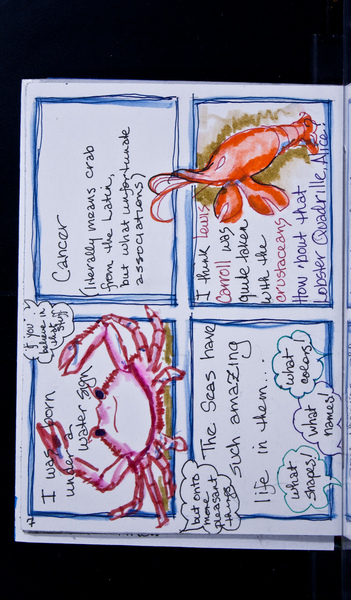 I was born
under a
water sign
(if you
believe in
that
stuff)
Cancer
(literally means crab
from the Latin,
but what unfortunate
associations)
but onto
more
pleasant
things
The Seas have
such amazing
life in them...
what
shapes!
what
names!
what
colors!
I think Lewis
Carroll was
quite taken
with the
crustaceans.
How 'bout that
Lobster Quadrille, Alice?